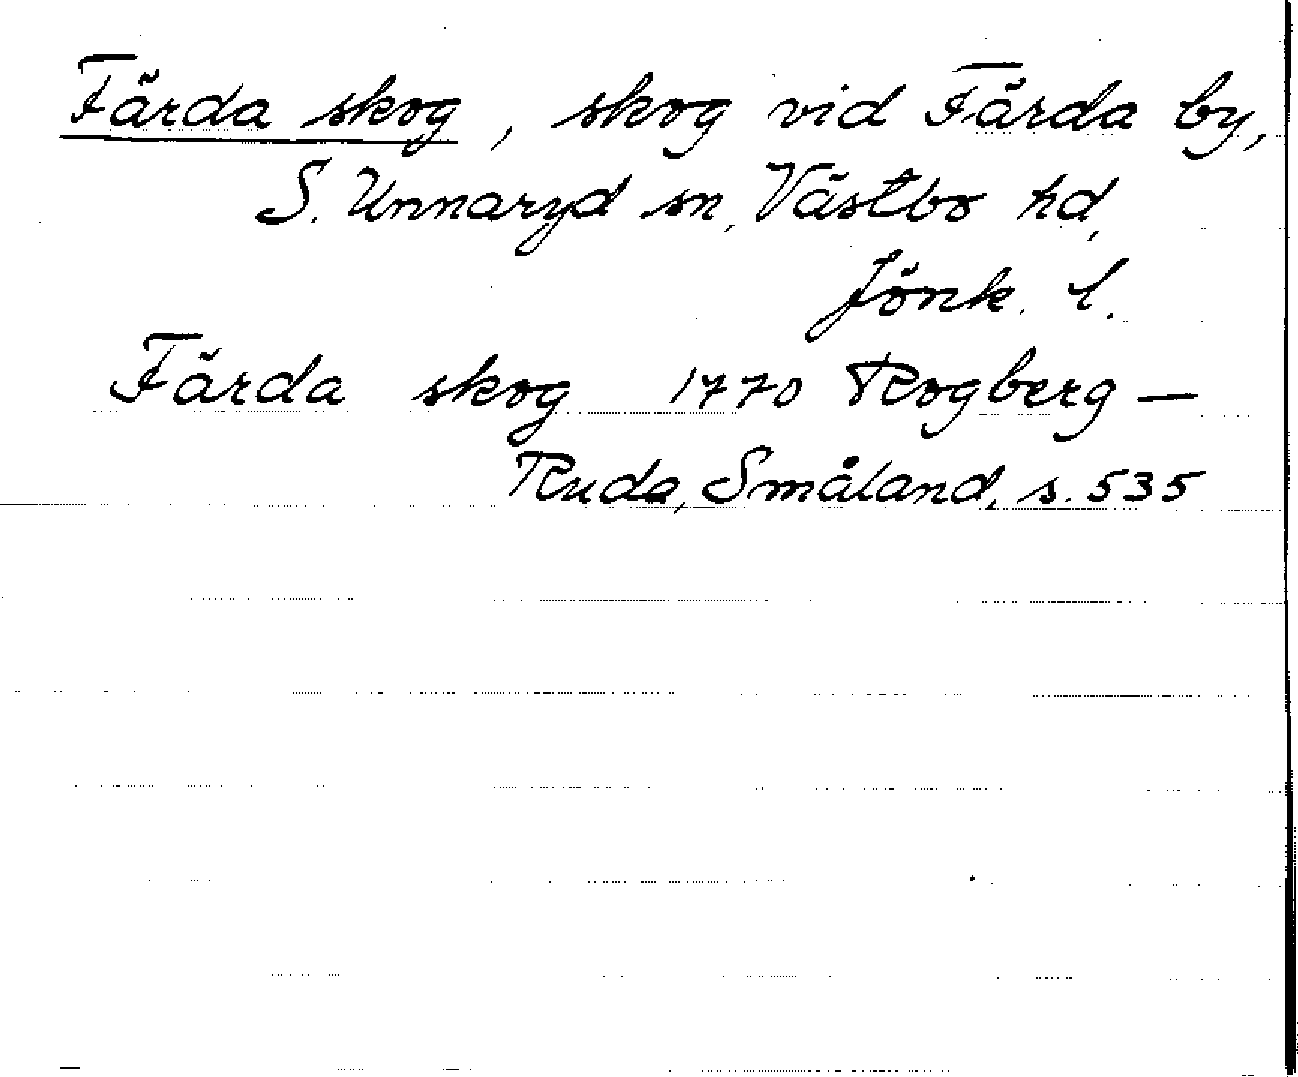 Färda skog, skog vid Färda by,
S. Unnaryd sn, Västbo hd,
Jönk. l.
Färda skog 1770 Rogberg—
Ruda, Småland, s. 535